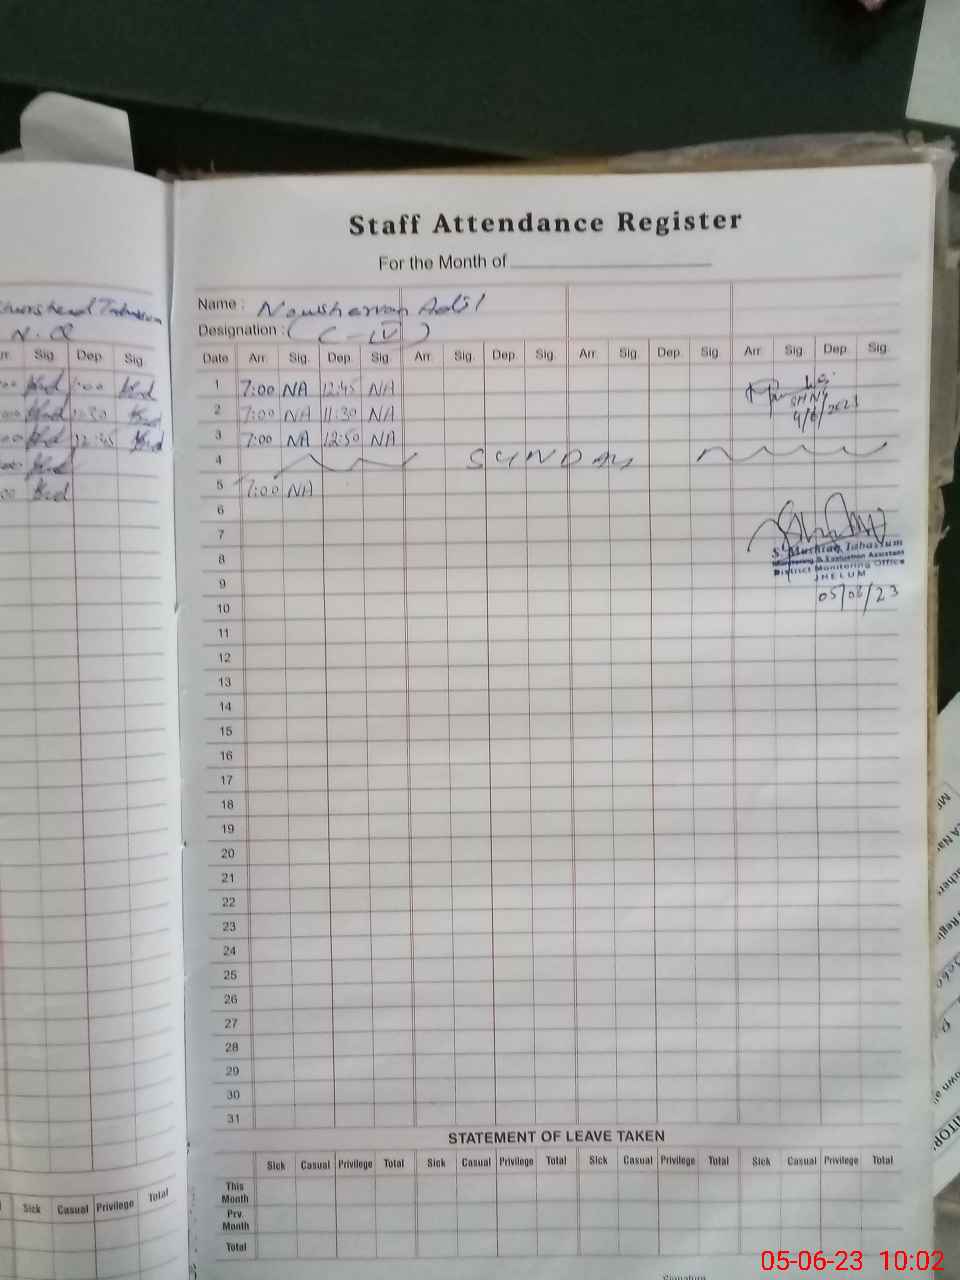 Staff Attendance Register
For the Month of
Name : Nowsherwan Adil
Designation : ( C-IV )
N.Q
Sig. Dep. Sig.
Date Arr. Sig. Dep. Sig. Arr. Sig. Dep. Sig. Arr. Sig. Dep. Sig. Arr. Sig. Dep. Sig.
1 7:00 NA 12:45 NA
2 7:00 NA 11:30 NA
3 7:00 NA 12:50 NA
4 SUNDAY
5 7:00 NA
6
7
8
9
10
11
12
13
14
15
16
17
18
19
20
21
22
23
24
25
26
27
28
29
30
31
S. Mushtaq Tabassum
Monitoring & Evaluation Assistant
District Monitoring Office
JHELUM
05/06/23
STATEMENT OF LEAVE TAKEN
Sick Casual Privilege Total Sick Casual Privilege Total Sick Casual Privilege Total Sick Casual Privilege Total
This Month
Prv. Month
Total
Sick Casual Privilege Total
Signature
05-06-23 10:02